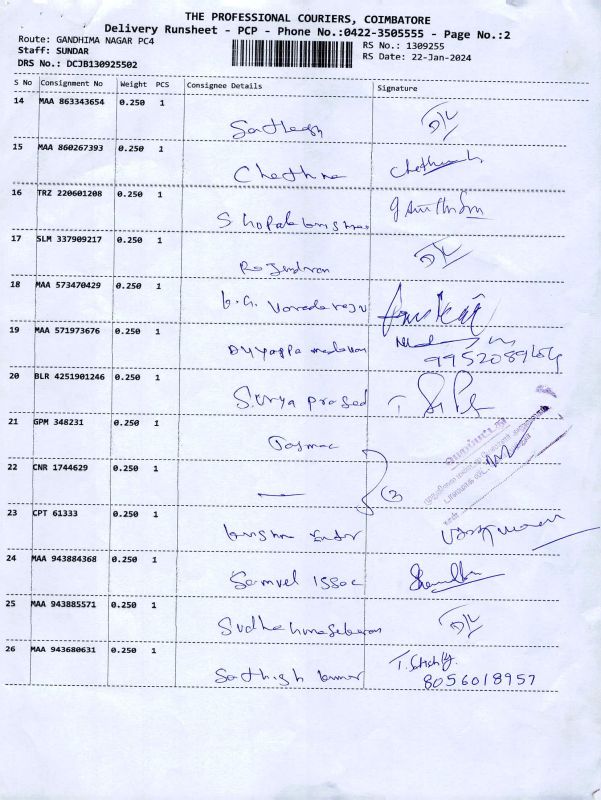 THE PROFESSIONAL COURIERS, COIMBATORE
Delivery Runsheet - PCP - Phone No.:0422-3505555 - Page No.:2
Route: GANDHIMA NAGAR PC4
RS No.: 1309255
Staff: SUNDAR
RS Date: 22-Jan-2024
DRS No.: DCJB130925502
S No Consignment No Weight PCS Consignee Details Signature
14 MAA 863343654 0.250 1
Sathish
15 MAA 860267393 0.250 1
Chethna
16 TRZ 220601208 0.250 1
17 SLM 337909217 0.250 1
Rajendran
18 MAA 573470429 0.250 1
19 MAA 571973676 0.250 1
20 BLR 4251901246 0.250 1
Surya prasad
21 GPM 348231 0.250 1
Tasmac
22 CNR 1744629 0.250 1
23 CPT 61333 0.250 1
24 MAA 943884368 0.250 1
Samvel Issac
25 MAA 943885571 0.250 1
26 MAA 943680631 0.250 1
Sathish kumar
8056018957